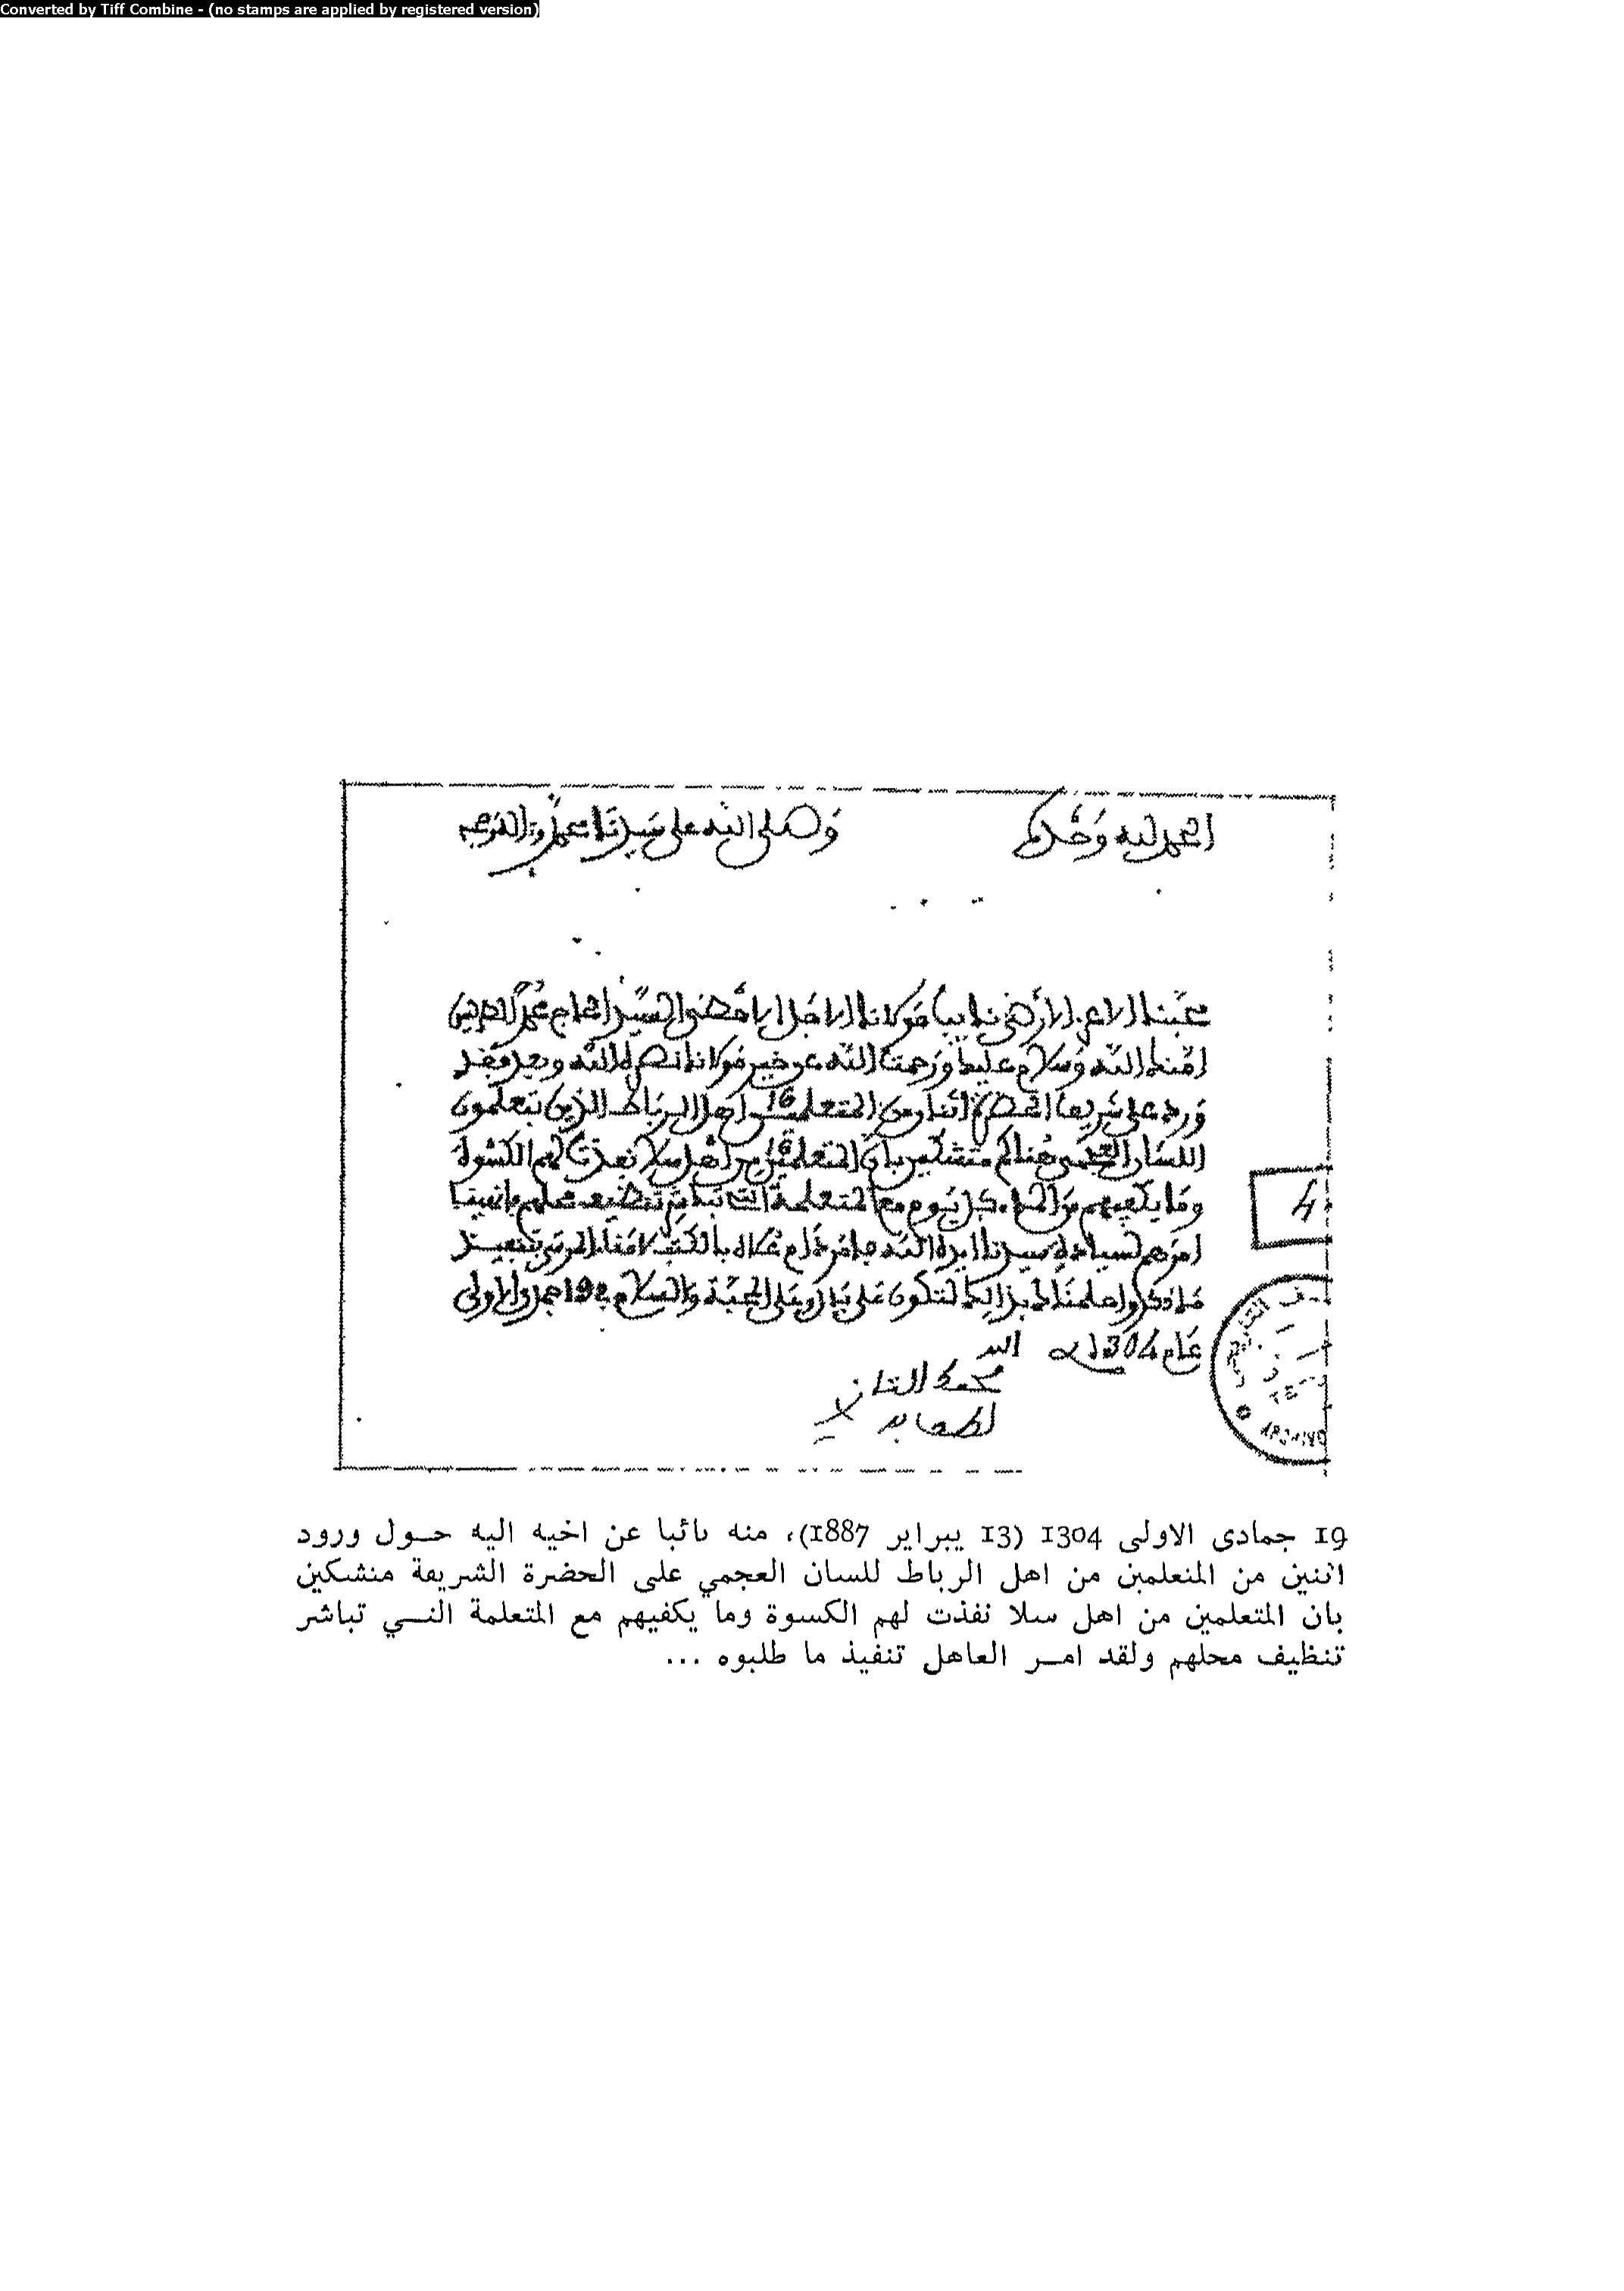 Converted by Tiff Combine - (no stamps are applied by registered version)
الحمد لله وحده
وصلى الله على سيدنا محمد وآله وصحبه
محبنا الاعز الارضى نائب مولانا الاجل الامضى السيد الحاج محمد الطريس
امنك الله وسلام عليك ورحمت الله عن خير مولانا نصره الله وبعد فقد
ورد على شريف الحضرة اثنان من المتعلمين اهل الرباط الذين يتعلمون
اللسان العجمي هنالكم متشكين بان المتعلمين من اهل سلا نفذت لهم الكسوة
وما يكفيهم من كل يوم مع المتعلمة التي تباشر تنظيف محلهم فانهينا
امرهم لسيادة سيدنا ايده الله فامر دام علاه بالكتب لامناء المرسى بتنفيذ
ما ذكر واعلمناك بذالك لتكون على بال وعلى المحبة والسلام في 19 جمدى الاولى
عام 1304
محمد
4
19 جمادى الاولى 1304 (13 يبراير 1887)، منه نائبا عن اخيه اليه حول ورود
اثنين من المتعلمين من اهل الرباط للسان العجمي على الحضرة الشريفة متشكين
بان المتعلمين من اهل سلا نفذت لهم الكسوة وما يكفيهم مع المتعلمة التي تباشر
تنظيف محلهم ولقد امر العاهل تنفيذ ما طلبوه ...